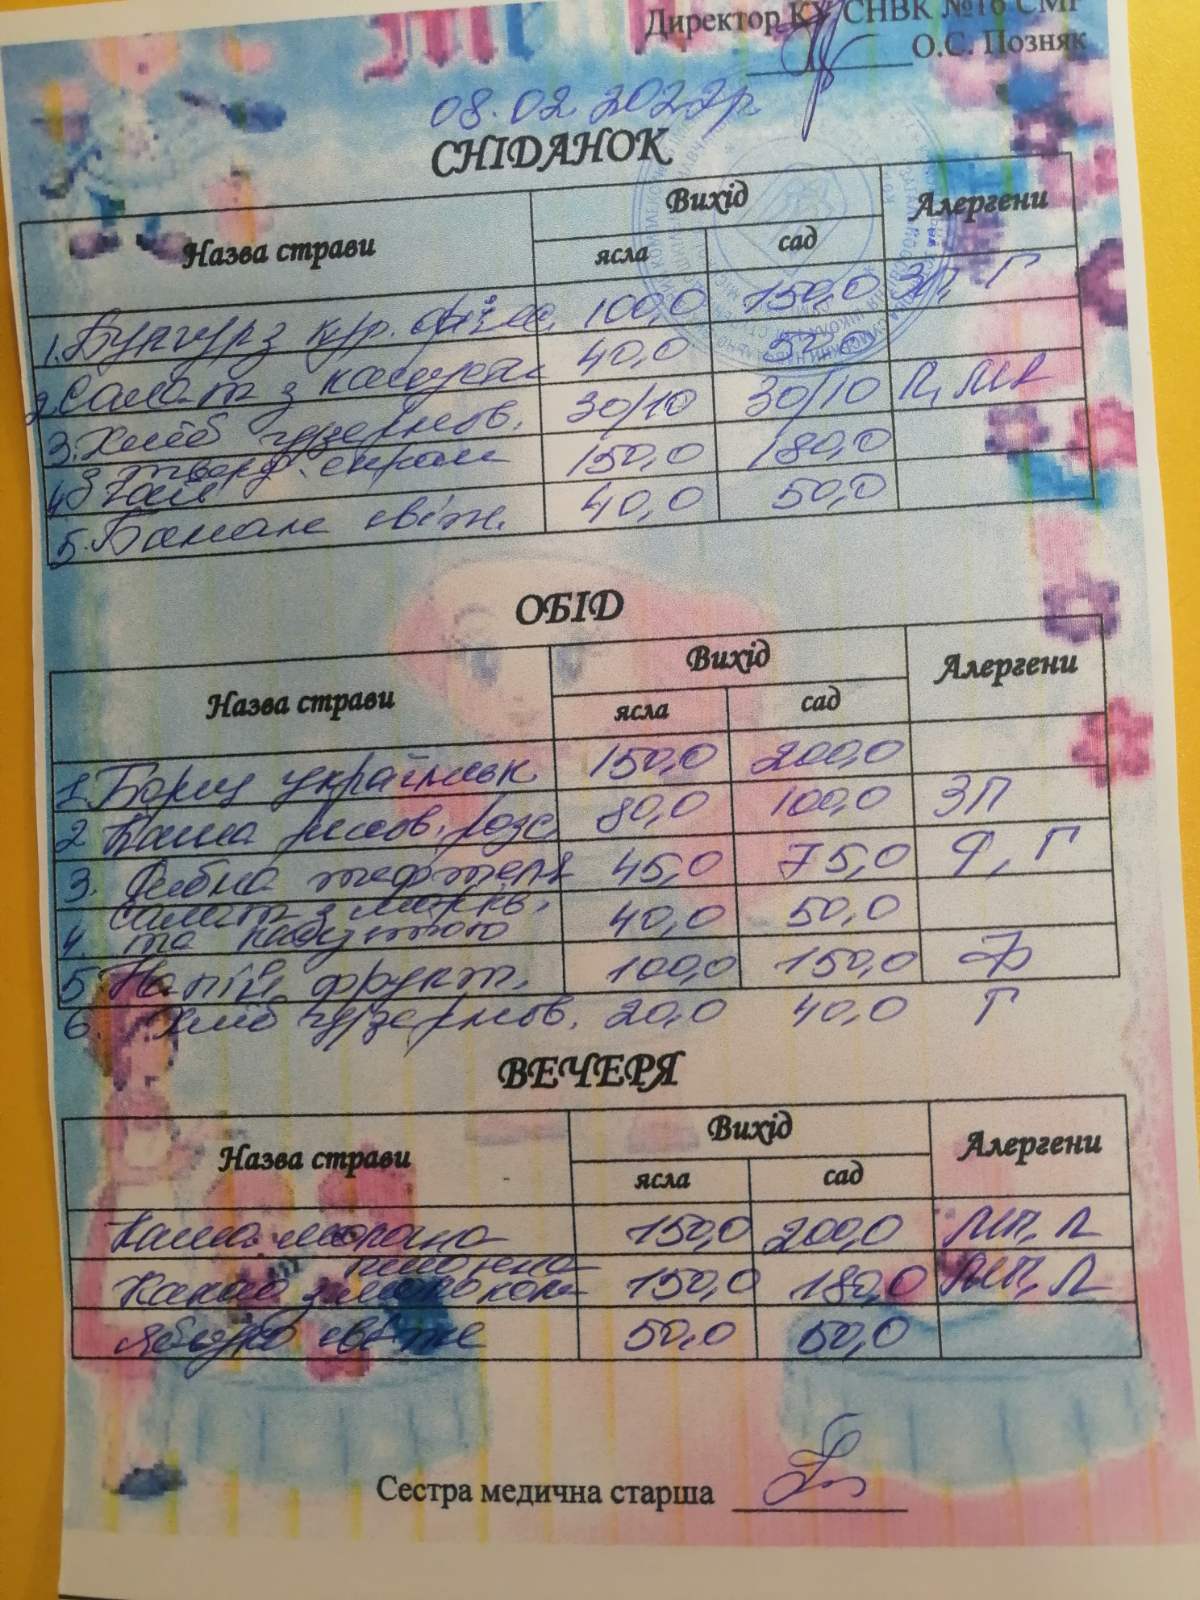 Директор КУ СНВК №16 СМР
О.С. Позняк
08.02.2022р
СНІДАНОК
Назва страви Вихід Алергени
ясла сад
1. Булгур з кур. філе 100,0 150,0 ЗП, Г
2. Салат з капусти 40,0 50,0
3. Хліб цзернов. 30/10 30/10 Л, МП
з тверд. сиром
4. Чай 150,0 180,0
5. Банане свіж. 40,0 50,0
ОБІД
Назва страви Вихід Алергени
ясла сад
1. Борщ українськ 150,0 200,0
2 Каша рисов. розс. 80,0 100,0 ЗП
3. Рибна тефтеля 45,0 75,0 Я, Г
4. Салат з моркв. 40,0 50,0
та капустою
5 Напій фрукт. 100,0 150,0
6. Хліб цзернов. 20,0 40,0 Г
ВЕЧЕРЯ
Назва страви Вихід Алергени
ясла сад
Каша молочна 150,0 200,0 МП, Л
пшоняна
Какао з молоком 150,0 180,0 МП, Л
Яблуко свіже 50,0 50,0
Сестра медична старша